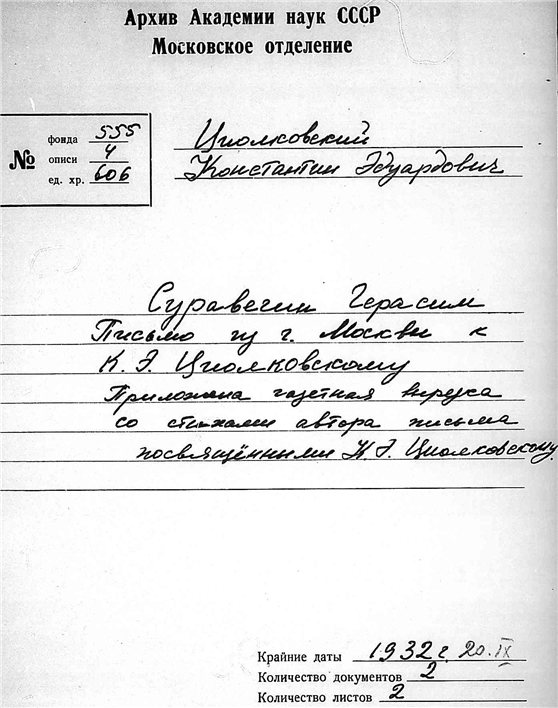 Архив Академии наук СССР
Московское отделение
№
фонда 555
описи 4
ед. хр. 606
Циолковский
Константин Эдуардович
Суравегин Герасим
Письмо из г. Москвы к
К. Э. Циолковскому
Приложена газетная вырезка
со стихами автора письма
посвящёнными К.Э. Циолковскому.
Крайние даты 1932 г. 20.IX
Количество документов 2
Количество листов 2